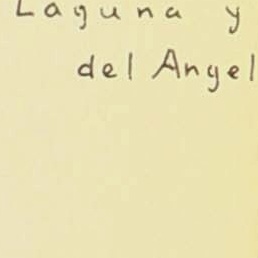 Laguna y
del Angel